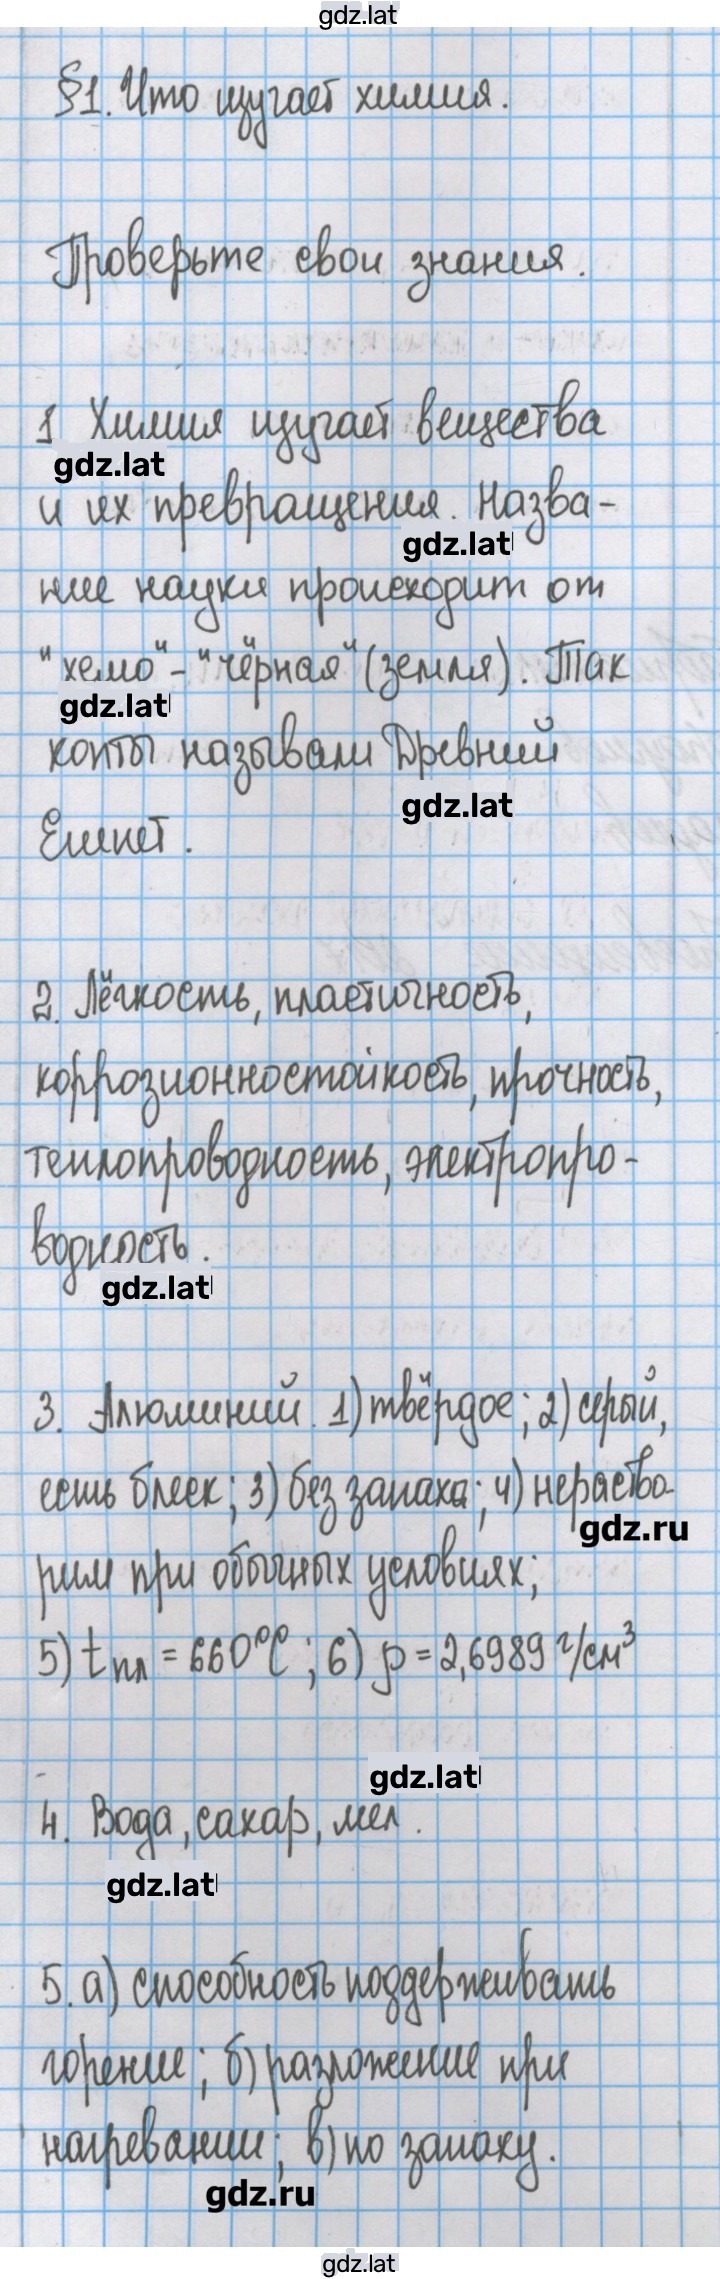 gdz.lat
§1. Что изучает химия.
Проверьте свои знания.
1 Химия изучает вещества
gdz.lat
и их превращения. Назва-
gdz.lat
ние науки происходит от
"хемо"-"чёрная" (земля). Так
gdz.lat
копты называли Древний
gdz.lat
Египет.
2. Лёгкость, пластичность,
коррозионностойкость, прочность,
теплопроводность, электропро-
водность.
gdz.lat
3. Алюминий. 1) твёрдое; 2) серый,
есть блеск; 3) без запаха; 4) нераство-
gdz.ru
рим при обычных условиях;
5) tпл = 660°С; 6) ρ = 2,6989 г/см³
gdz.lat
4. Вода, сахар, мел.
gdz.lat
5. а) способность поддерживать
горение; б) разложение при
нагревании; в) по запаху.
gdz.ru
gdz.lat